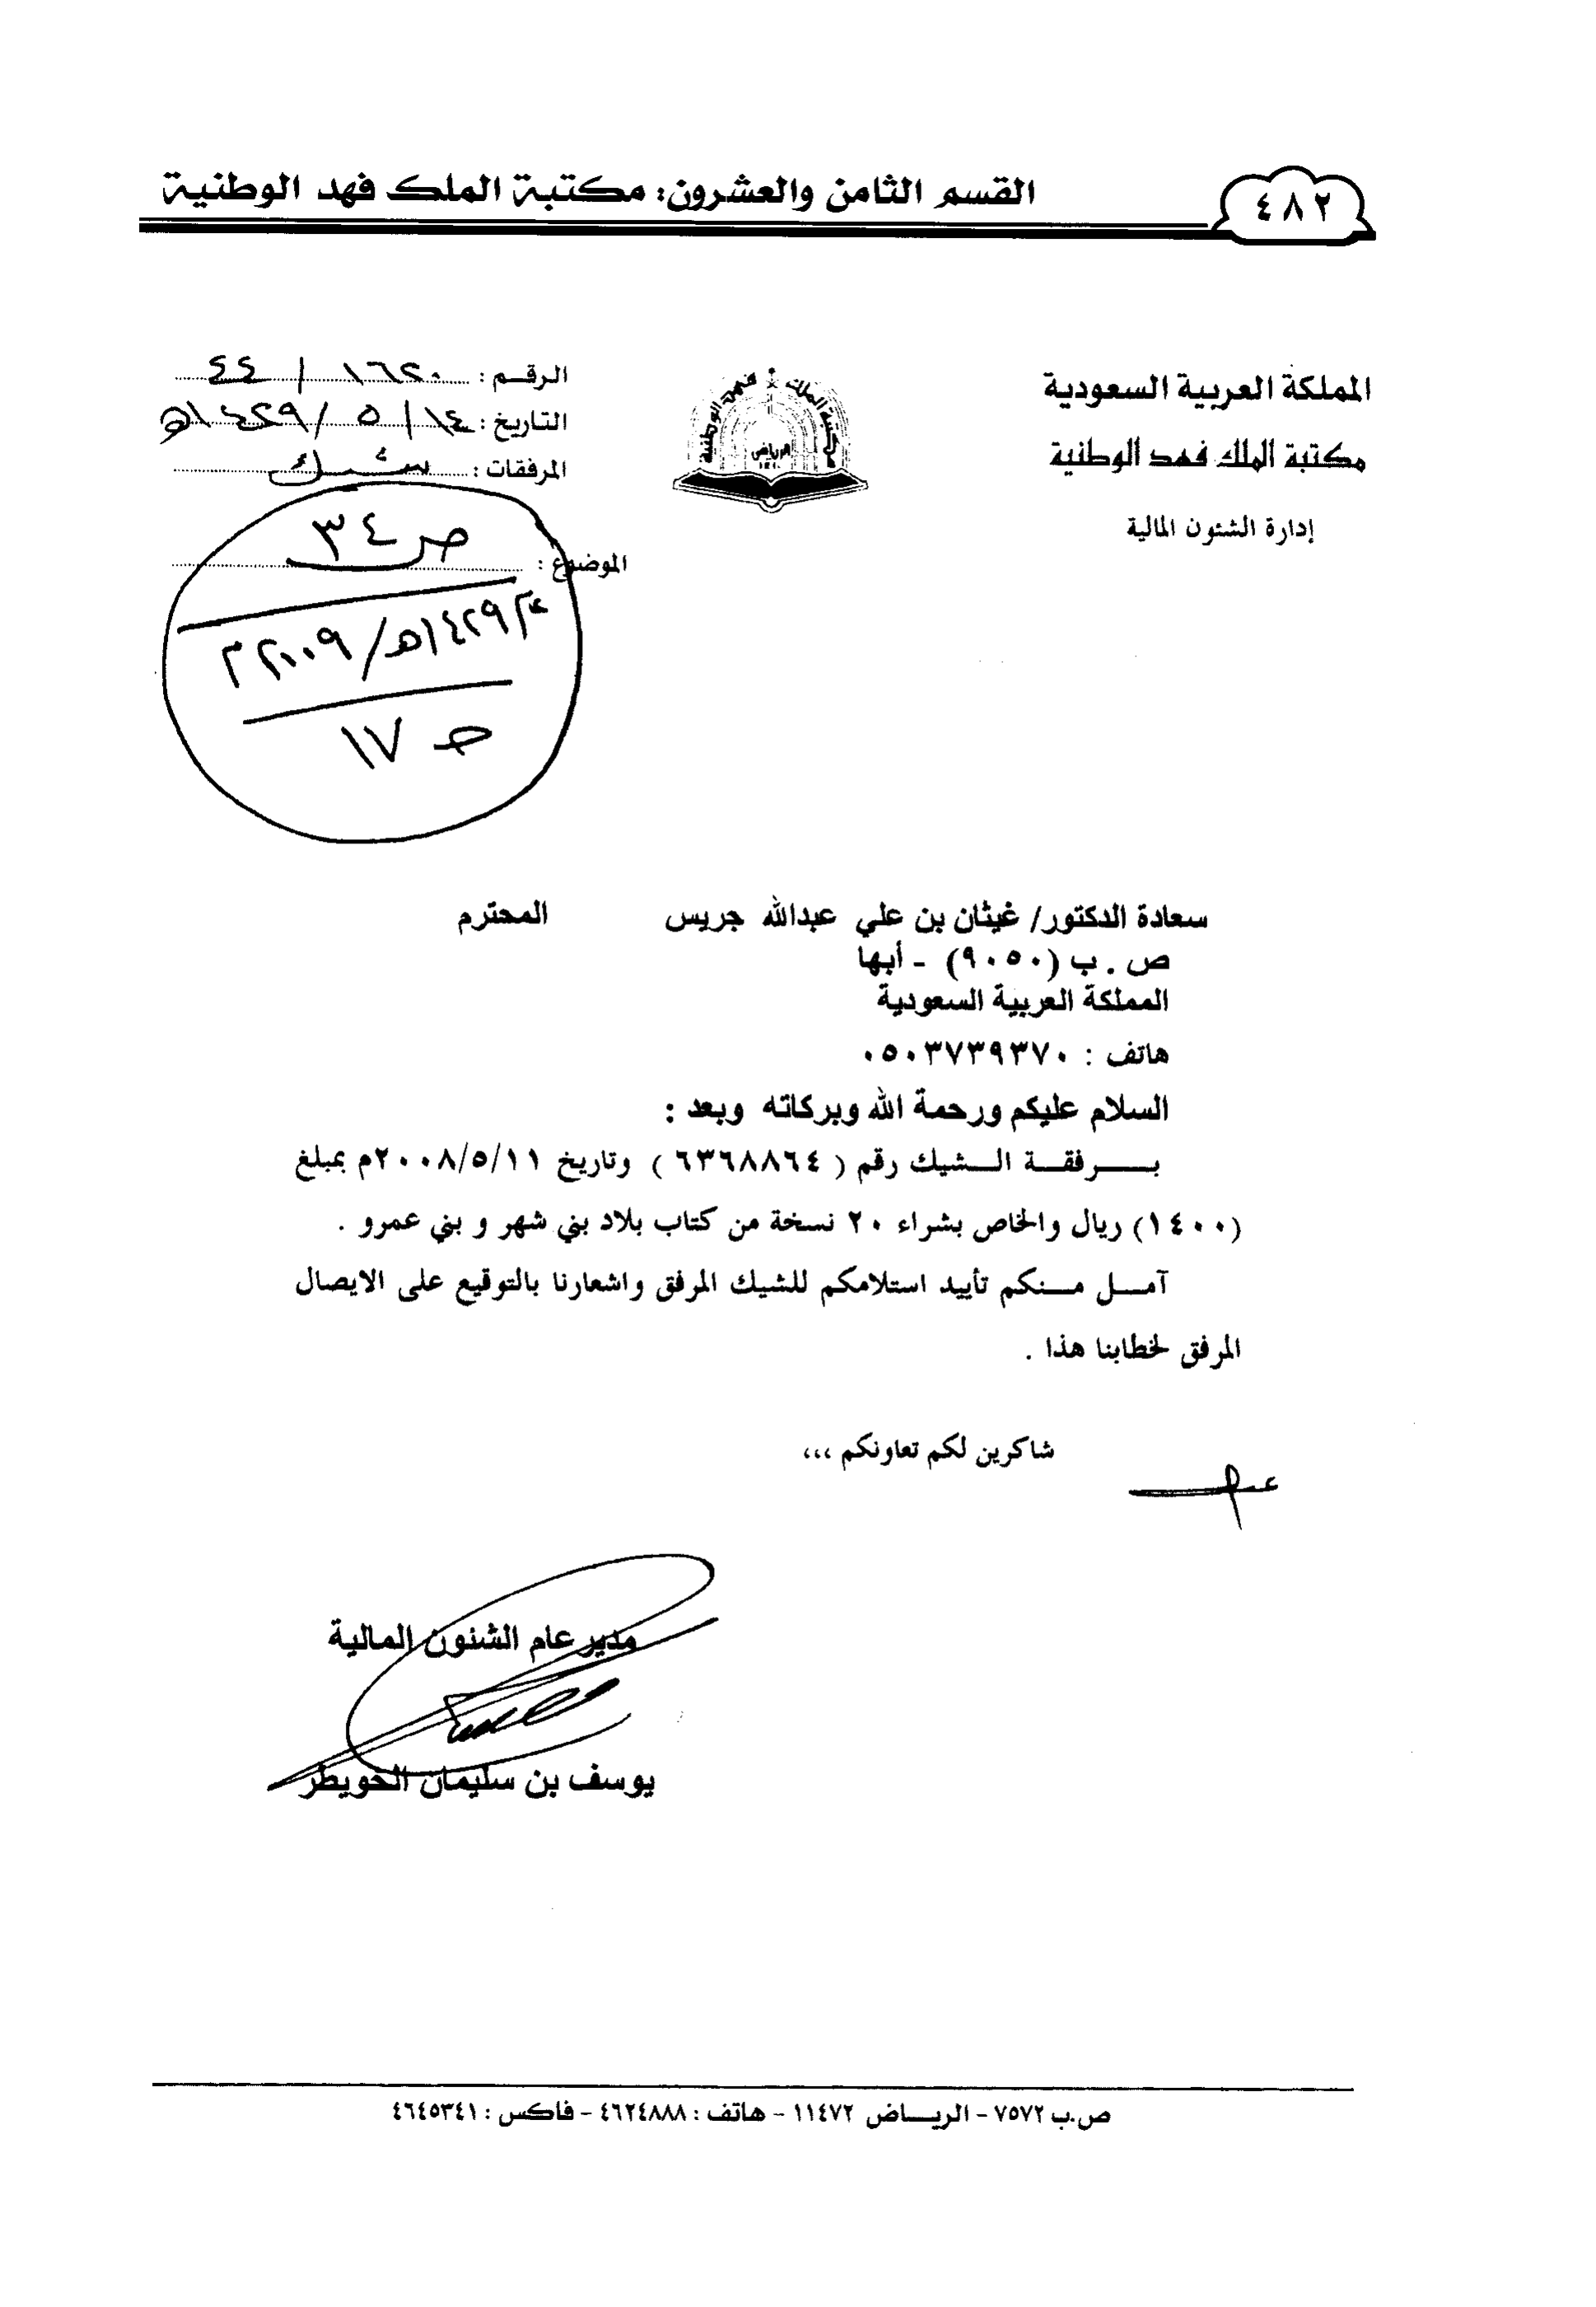 ٤٨٢
القسم الثامن والعشرون: مكتبة الملك فهد الوطنية
المملكة العربية السعودية
مكتبة الملك فهد الوطنية
إدارة الشئون المالية
مكتبة الملك فهد الوطنية
الرياض
الرقـم : ١٦٢٠ / ٤٤
التاريخ : ١٤ / ٥ / ١٤٢٩هـ
المرفقات : شيك
الموضوع :
ص ٣٤
١٤٢٩هـ / ٢٠٠٩م
حـ ١٧
سعادة الدكتور/ غيثان بن علي عبدالله جريس المحترم
ص . ب (٩٠٥٠) - أبها
المملكة العربية السعودية
هاتف : ٠٥٠٣٧٣٩٣٧٠
السلام عليكم ورحمة الله وبركاته وبعد :
بـــرفقـة الـشيك رقم ( ٦٣٦٨٨٦٤ ) وتاريخ ٢٠٠٨/٥/١١م بمبلغ
(١٤٠٠) ريال والخاص بشراء ٢٠ نسخة من كتاب بلاد بني شهر و بني عمرو .
آمـل مـنكم تأييد استلامكم للشيك المرفق واشعارنا بالتوقيع على الايصال
المرفق لخطابنا هذا .
شاكرين لكم تعاونكم ،،،
مدير عام الشئون المالية
يوسف بن سليمان الخويطر
ص.ب ٧٥٧٢ - الريـاض ١١٤٧٢ - هاتف : ٤٦٢٤٨٨٨ - فاكس : ٤٦٤٥٣٤١